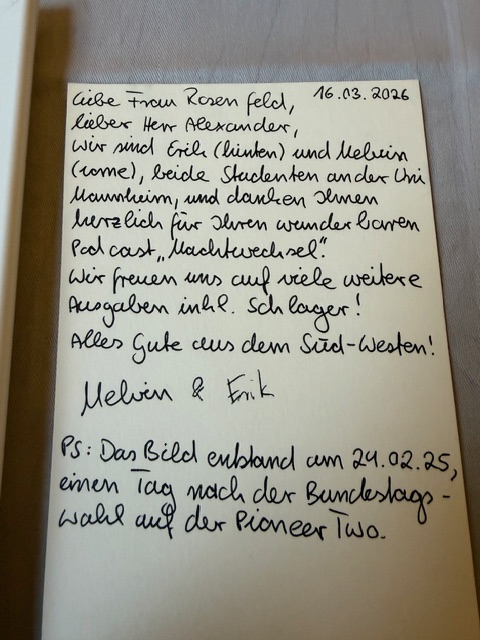 Liebe Frau Rosenfeld, 16.03.2026
lieber Herr Alexander,
Wir sind Erik (hinten) und Melvin
(vorne), beide Studenten an der Uni
Mannheim, und danken Ihnen
herzlich für Ihren wunderbaren
Podcast „Machtwechsel".
Wir freuen uns auf viele weitere
Ausgaben inkl. Schlager!
Alles Gute aus dem Süd-Westen!
Melvin & Erik
PS: Das Bild entstand am 24.02.25,
einen Tag nach der Bundestags-
wahl auf der Pioneer Two.